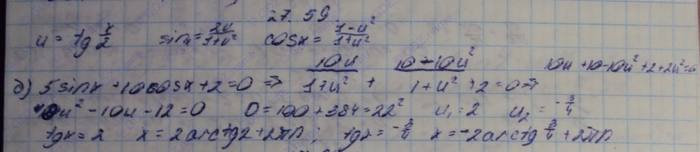 27.59
u = tg x/2   sinx = 2u/1+u²   cosx = 1-u²/1+u²
б) 5sinx+10cosx+2=0 ⇒ 10u/1+u² + 10-10u²/1+u² +2=0 ⇒   10u+10-10u²+2+2u²=0
u²-10u-12=0   D=100+384=22²   u₁=2   u₂= -3/4
tgx=2   x=2arctg2+2πn;   tgx=-3/4   x=-2arctg 3/4+2πn